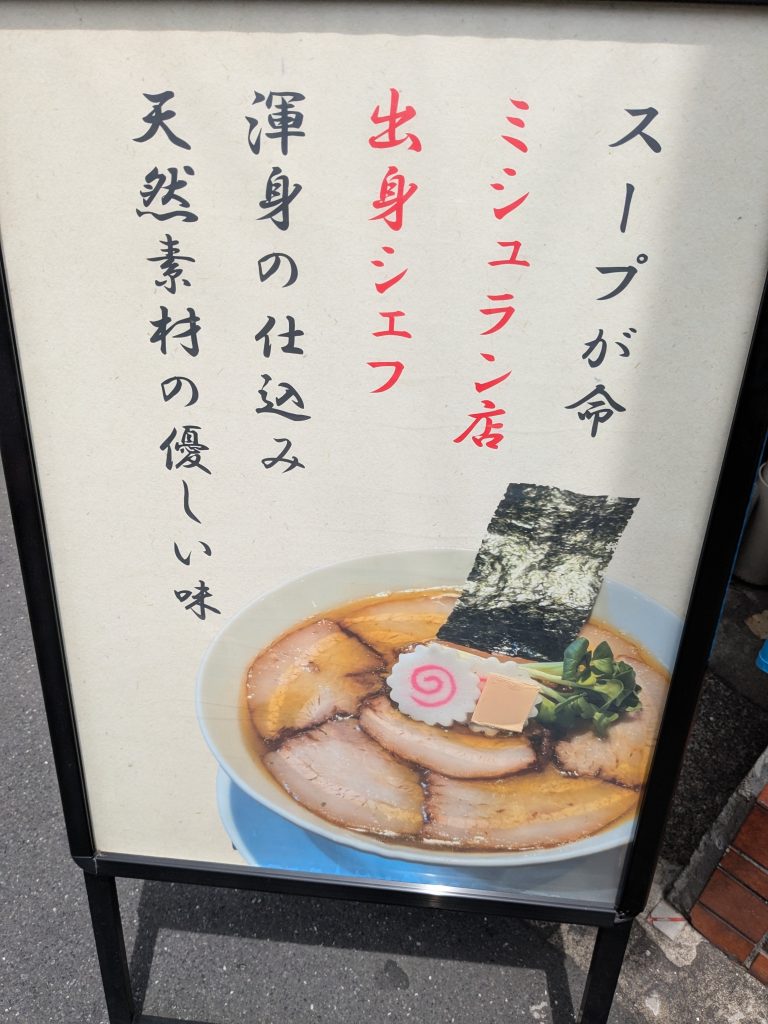 スープが命
ミシュラン店
出身シェフ
渾身の仕込み
天然素材の優しい味